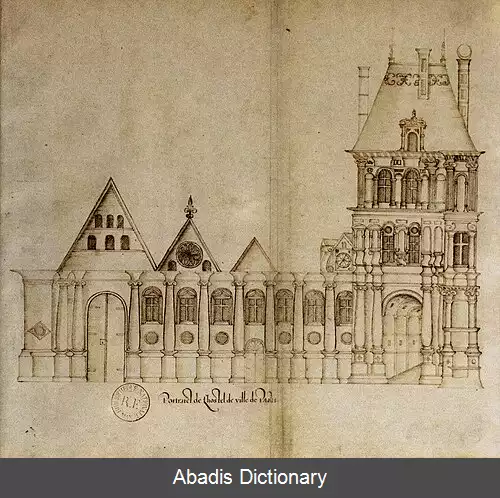 Portraict de Lhostel de ville de Paris
R.F.
Abadis Dictionary